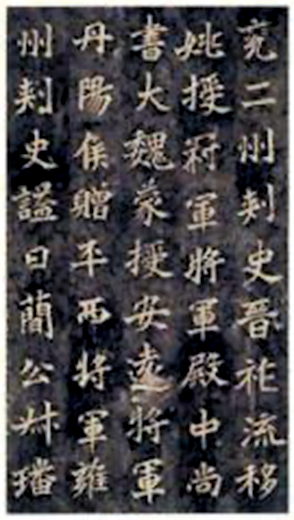 兖二州刾史晉祚流移
姚授冠軍將軍殿中尚
書大魏蒙授安遠將軍
丹陽侯贈平西將軍雍
州刾史諡曰簡公艸璠